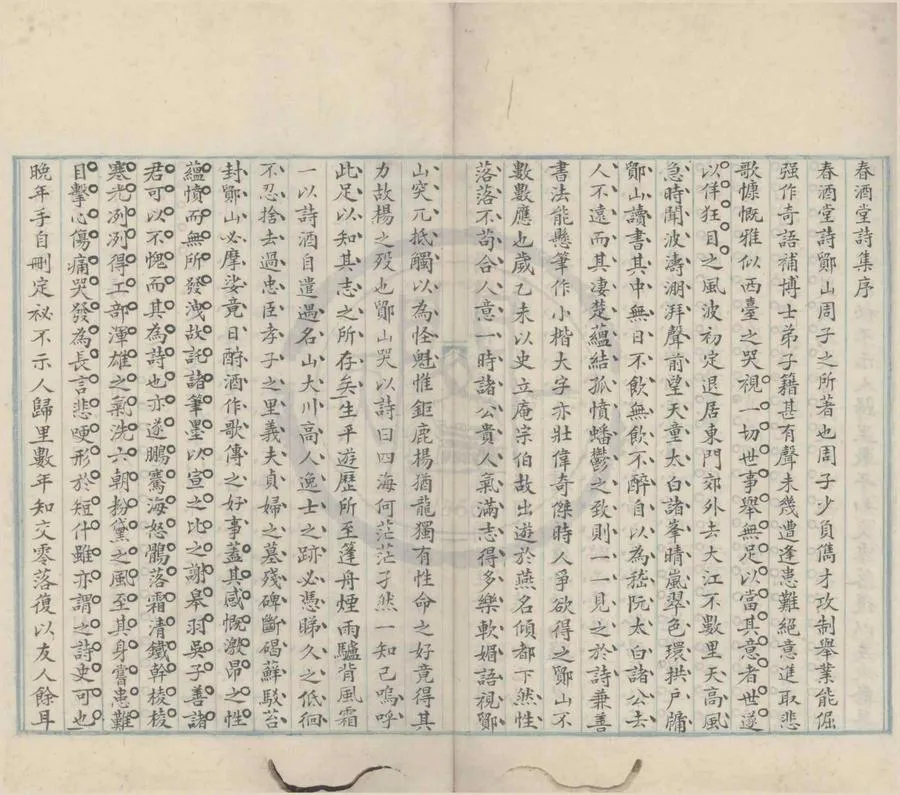 春酒堂詩集序
春酒堂詩鄮山周子之所著也周子少負儁才攻制舉業能倔
强作奇語補博士弟子籍甚有聲未幾遭逢患難絕意進取悲
歌慷慨雅似西臺之哭視一切世事舉無足以當其意者世遂
以佯狂目之風波初定退居東門郊外去大江不數里天高風
急時聞波濤溯湃聲前望天童太白諸峯晴嵐翠色環拱戶牗
鄮山讀書其中無日不飲無飲不醉自以為嵇阮太白諸公去
人不遠而其凄楚蘊結孤憤蟠鬱之致則一一見之於詩兼善
書法能懸筆作小楷大字亦壯偉奇傑時人爭欲得之鄮山不
數數應也歲乙未以史立庵宗伯故出遊於燕名傾都下然性
落落不苟合人意一時諸公貴人氣滿志得多樂軟媚語視鄮
山突兀抵觸以為怪魁惟鉅鹿楊猶龍獨有性命之好竟得其
力故楊之歿也鄮山哭以詩曰四海何茫茫孑然一知己嗚呼
此足以知其志之所存矣生平遊歷所至蓬舟煙雨驢背風霜
一以詩酒自遣過名山大川高人逸士之跡必憑睇久之低徊
不忍捨去過忠臣孝子之里義夫貞婦之墓殘碑斷碣蘚駮苔
封鄮山必摩娑竟日酹酒作歌傳之好事蓋其感慨激昂之性
蘊憤而無所發洩故託諸筆墨以宣之比之謝皋羽吳子善諸
君可以不愧而其為詩也亦遂鵬騫海怒鶻落霜清鐵幹棱棱
寒光冽冽得工部渾雄之氣洗六朝粉黛之風至其身嘗患難
目擊心傷痛哭發為長言悲哽形於短什雖亦謂之詩史可也
晚年手自刪定祕不示人歸里數年知交零落復以友人餘耳